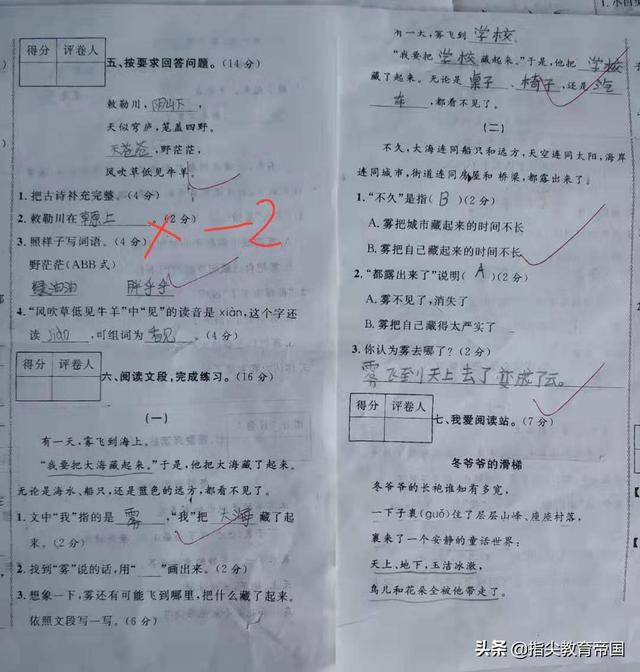 得分 评卷人
五、按要求回答问题。(14分)
敕勒川，阴山下，
天似穹庐，笼盖四野。
天苍苍，野茫茫，
风吹草低见牛羊。
1.把古诗补充完整。(4分)
2.敕勒川在草原上。(2分)
× －2
3.照样子写词语。(4分)
野茫茫(ABB式)
绿油油 胖乎乎
4.“风吹草低见牛羊”中“见”的读音是xiàn,这个字还
读 jiàn ,可组词为 看见 。(4分)
得分 评卷人
六、阅读文段,完成练习。(16分)
(一)
有一天,雾飞到海上。
“我要把大海藏起来。”于是,他把大海藏了起来。
无论是海水、船只,还是蓝色的远方,都看不见了。
1.文中“我”指的是 雾 ,“我”把 大海 藏了起
来。(2分)
2.找到“雾”说的话,用“____”画出来。(2分)
3.想象一下,雾还有可能飞到哪里,把什么藏了起来。
依照文段写一写。(6分)
有一天,雾飞到 学校 。
“我要把 学校 藏起来。”于是,他把 学校
藏了起来。无论是 桌子 、 椅子 ,还是 汽
车 ,都看不见了。
(二)
不久,大海连同船只和远方,天空连同太阳,海岸
连同城市,街道连同房屋和桥梁,都露出来了。
1.“不久”是指( B )(2分)
A.雾把城市藏起来的时间不长
B.雾把自己藏起来的时间不长
2.“都露出来了”说明( A )(2分)
A.雾不见了,消失了
B.雾把自己藏得太严实了
3.你认为雾去哪了?(2分)
雾飞到天上去了变成了云。
得分 评卷人
七、我爱阅读站。(7分)
冬爷爷的滑梯
冬爷爷的长袍谁知有多宽,
一下子裹(guǒ)住了层层山峰、座座村落,
裹来了一个安静的童话世界:
天上、地下,玉洁冰澈,
鸟儿和花朵全被他带走了。
头条 @指尖教育帝国